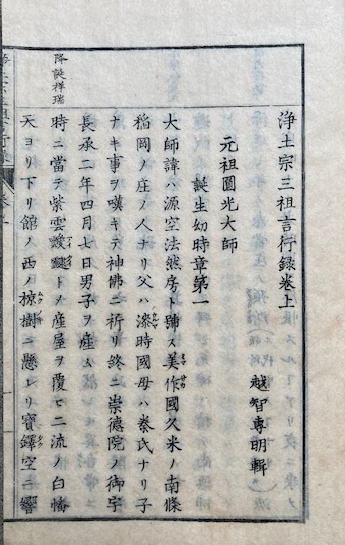 浄土宗三祖言行録巻上
越智専明輯
元祖圓光大師
誕生幼時章第一
大師諱ハ源空法然房ト號ス美作國久米ノ南條
稲岡ノ庄ノ人ナリ父ハ漆時國母ハ秦氏ナリ子
ナキ事ヲ嘆キテ神佛ニ祈リ終ニ崇徳院ノ御宇
長承二年四月七日男子ヲ産ム
降誕祥瑞
時ニ當テ紫雲靉靆トメ産屋ヲ覆ヒ二流ノ白幡
天ヨリ下リ館ノ西ノ椋樹ニ懸レリ寶鐸空ニ響